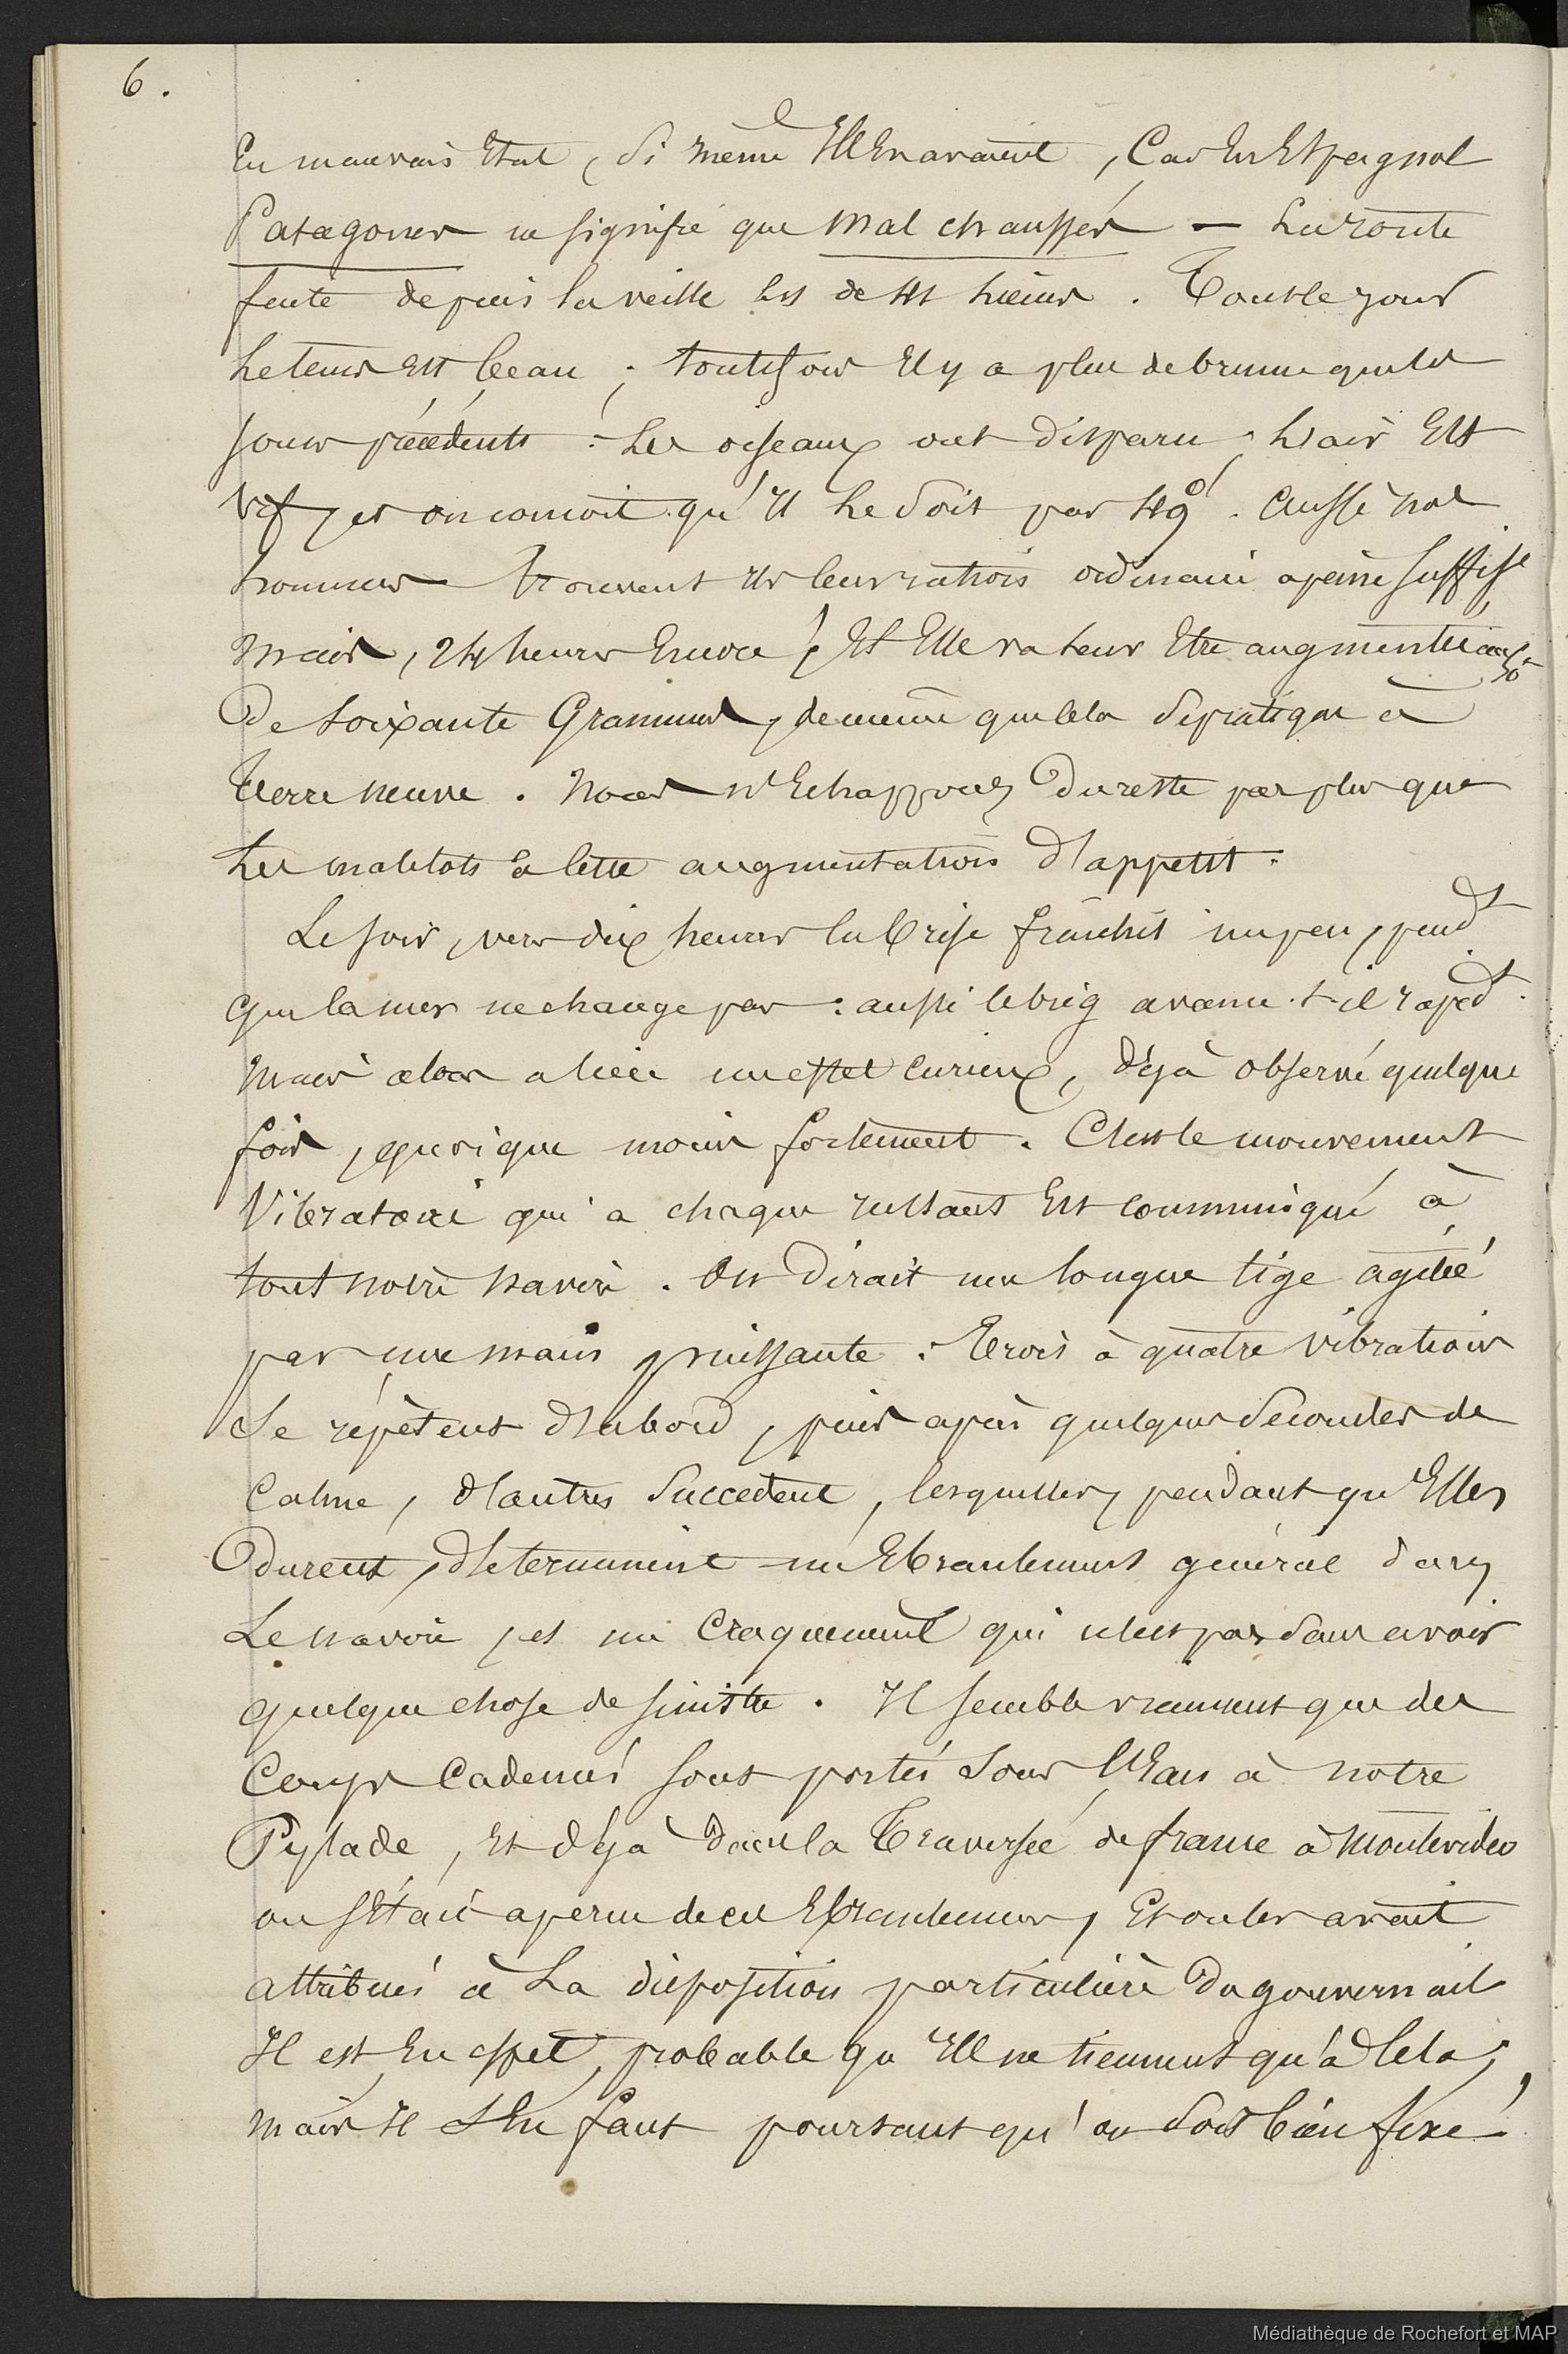 6.
En mauvais Etat, si même Ils En avaient, Car En Espagnol
Patagones ne signifie que Mal chaussés — La route
faite depuis la veille Est de lieues. Tout le jour
Le tems Est beau ; toutefois Il y a plus de brume que les
jours précédents : Les oiseaux ont disparu ; L'air Est
vif, et on conçoit qu'Il Le soit par 49°. Aussi nos
hommes trouvent Ils leur ration ordinaire à peine suffise
Mais, 24 heures Encore, Et Elle va leur Etre augmentée
De soixante Grammes, de même que cela se pratique à
Terre neuve. Nous n'Echappons Du reste pas plus que
Les matelots à cette augmentation d'appetit.
Le soir, vers dix heures la brise fraichit un peu, pend^t
que la mer ne change pas : aussi le brig avance-t-il rapid^t.
Mais alors a lieu un effet curieux, déjà observé quelque
fois, quoique moins fortement. C'est le mouvement
Vibratoire qui à chaque ressaut Est communiqué à
tout notre navire. On dirait une longue tige agitée
par une main puissante. Trois à quatre vibrations
Se répètent d'abord, puis après quelques Secondes de
Calme, d'autres Succedent, lesquelles, pendant qu'Elles
Durent, déterminent un Ebranlement général dans
Le navire, et un Craquement qui n'est pas sans avoir
quelque chose de sinistre. Il semble vraiment que des
Coups Cadencés sont portés sous l'Eau à notre
Pylade, Et déjà dans la Traversée de france à Montevideo
on s'Etait aperçu de ces Ebranlemens, Et on les avait
attribués à La disposition particulière Du gouvernail
Il est, En effet, probable qu'Ils ne tiennent qu'à Cela ;
Mais Il s'En faut pourtant qu'on soit bien fixé
Médiathèque de Rochefort et MAP